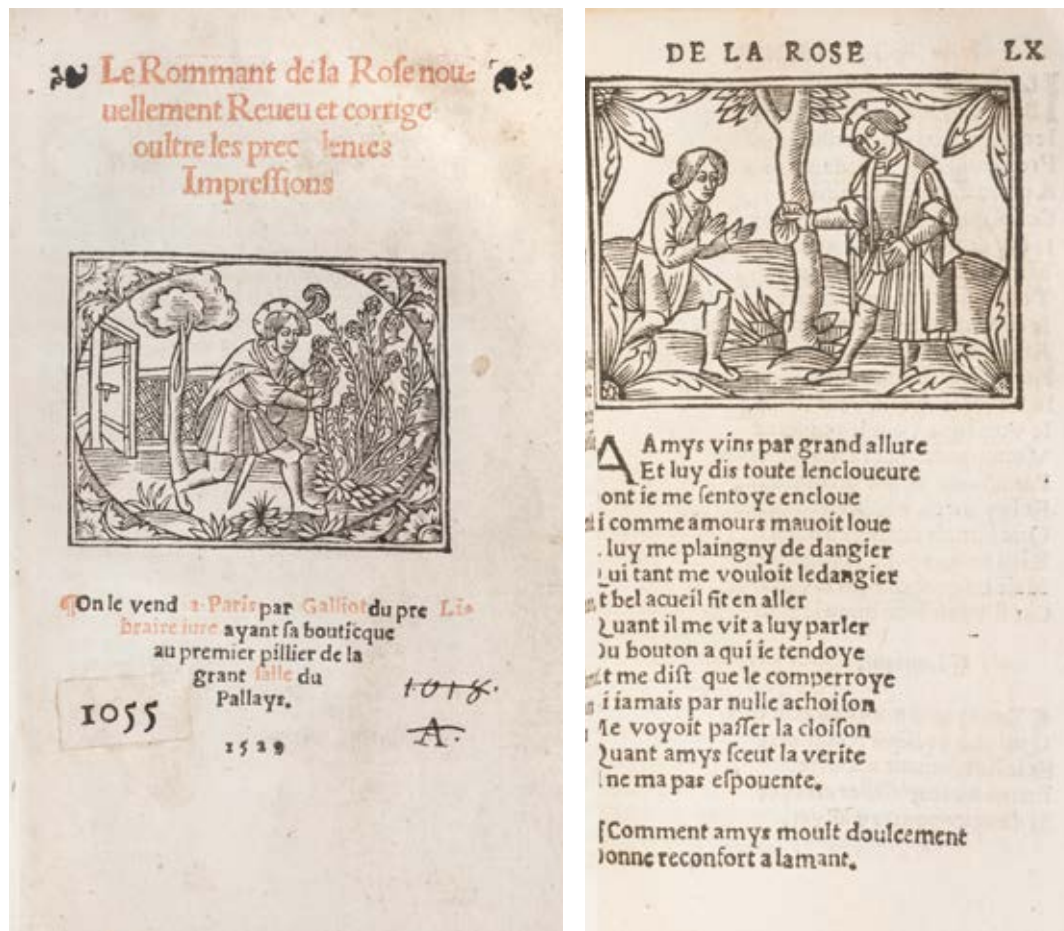 Le Rommant de la Rose nou-
uellement Reueu et corrige
oultre les prec lentes
Impreſſions
¶On le vend a Paris par Galliot du pre Li-
braire iure ayant ſa bouticque
au premier pillier de la
grant ſalle du
Pallays.
1055
1018.
A.
1529
DE LA ROSE LX
A Amys vins par grand allure
Et luy dis toute lencloueure
ont ie me ſentoye encloue
i comme amours mauoit loue
luy me plaingny de dangier
ui tant me vouloit ledangier
t bel acueil fit en aller
Quant il me vit a luy parler
Du bouton a qui ie tendoye
t me diſt que le comperroye
i iamais par nulle achoiſon
e voyoit paſſer la cloiſon
Quant amys ſceut la verite
l ne ma pas eſpouente.
Comment amys moult doulcement
onne reconfort a lamant.